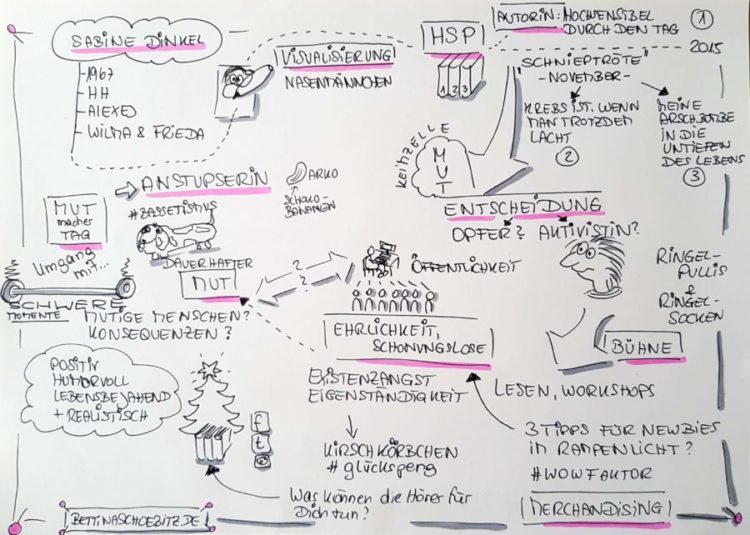 SABINE DINKEL
- 1967
- HH
- ALEXEJ
- WILMA & FRIEDA
VISUALISIERUNG
NASENMÄNNCHEN
HSP
1 2 3
AUTORIN: HOCHSENSIBEL
DURCH DEN TAG
1
2015
"SCHNIEPTRÖTE"
- NOVEMBER -
KREBS IST, WENN
MAN TROTZDEM
LACHT
2
MEINE
ARSCHBOMBE
IN DIE
UNTIEFEN
DES LEBENS
3
KEIMZELLE
MUT
ENTSCHEIDUNG
OPFER? AKTIVISTIN?
ANSTUPSERIN
ARKO
SCHOKO-
BANANEN
MUT
macher
TAG
#BASSETISTMUS
Umgang
mit...
SCHWERE
MOMENTE
DAUERHAFTER
MUT
? ?
ÖFFENTLICHKEIT
MUTIGE MENSCHEN?
KONSEQUENZEN?
EHRLICHKEIT,
SCHONUNGSLOSE
RINGEL-
PULLIS
&
RINGEL-
SOCKEN
BÜHNE
LESEN, WORKSHOPS
POSITIV
HUMORVOLL
LEBENSBEJAHEND
+ REALISTISCH
EXISTENZANGST
EIGENSTÄNDIGKEIT
KIRSCHKÖRBCHEN
#glückspeng
3 TIPPS FÜR NEWBIES
IM RAMPENLICHT?
#WOWFAKTOR
f
t
Was können die Hörer für
Dich tun?
MERCHANDISING
BETTINASCHOEBITZ.DE